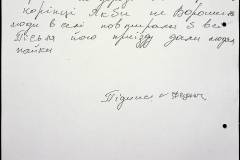 корінці Якби не Ворошил
люди в селі повмирали б всі
Після його приїзду дали людям
пайки
Підпис